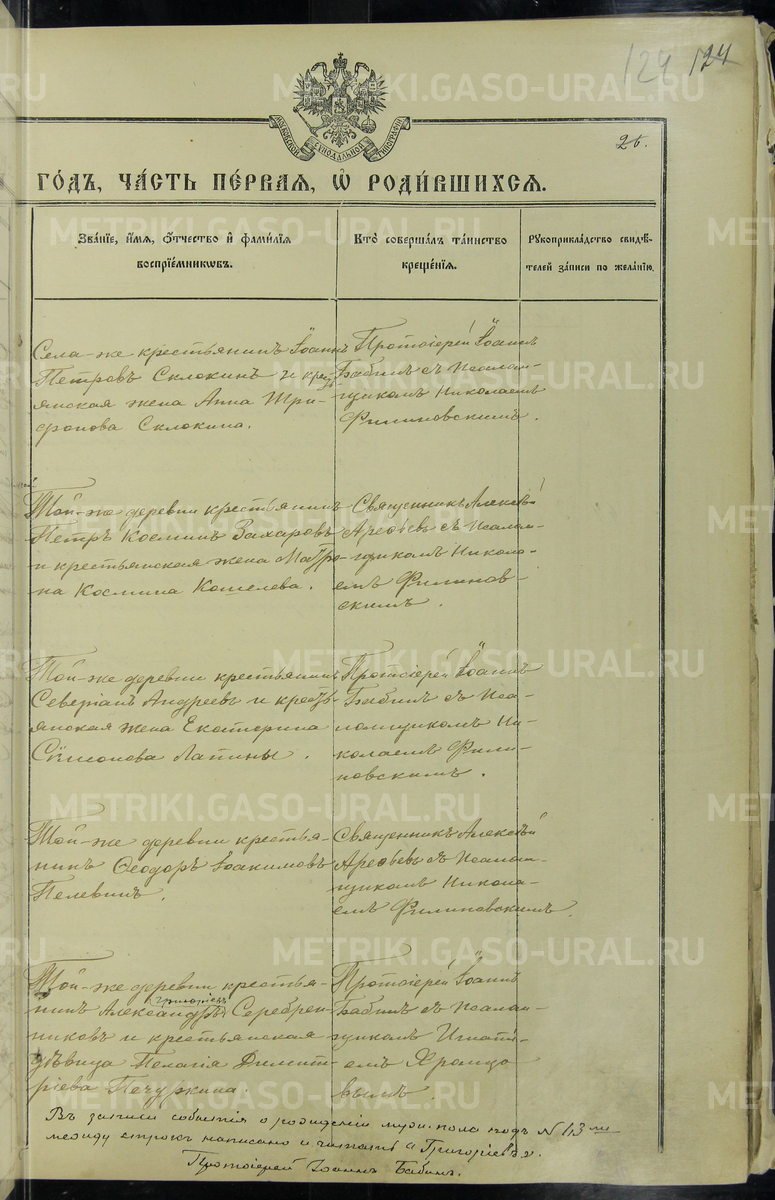 124 124
МОСКОВСКОЙ СѴНОДАЛЬНОЙ ТИПОГРАФІИ
26.
ГОДЪ, ЧАСТЬ ПЕРВАЯ, Ѡ РОДИВШИХСЯ.
Званіе, имя, отчество и фамилія воспріемниковъ.
Кто совершалъ таинство крещенія.
Рукоприкладство свидѣтелей записи по желанію.
Села-же крестьянинъ Іоаннъ
Петровъ Склокинъ и крест-
янская жена Анна Три-
фонова Склокина.
Протоіерей Іоаннъ
Бабинъ съ псалом-
щикомъ Николаемъ
Филиновскимъ.
Той-же деревни крестьянинъ
Петръ Космин Захаровъ
и крестьянская жена Матро-
на Космина Кошелева.
Священникъ Алексѣй
Арефьевъ съ псалом-
щикомъ Никола-
емъ Филинов-
скимъ.
Той-же деревни крестьянинъ
Северіанъ Андреевъ и кресть-
янская жена Екатерина
Симеонова Лапины.
Протоіерей Іоаннъ
Бабинъ съ пса-
ломщикомъ Ни-
колаемъ Фили-
новскимъ.
Той-же деревни крестья-
нинъ Ѳеодоръ Іоакимовъ
Пелевинъ.
Священникъ Алексѣй
Арефьевъ съ псалом-
щикомъ Никола-
емъ Филиновскимъ.
Той-же деревни крестья-
Григоріевъ
нинъ Александръ Серебрен-
никовъ и крестьянская
дѣвица Пелагія Димит-
ріева Печуркина.
Протоіерей Іоаннъ
Бабинъ съ псалом-
щикомъ Игнаті-
емъ Хромцо-
вымъ.
Въ записи событія о рожденіи муж. пола подъ № 43 ли
между строкъ написано и читать „Григоріевъ".
Протоіерей Іоаннъ Бабинъ.
METRIKI.GASO-URAL.RU